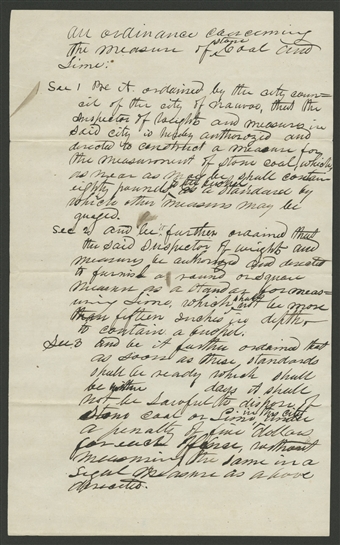 An ordinance concerning
the measure of stone Coal and
Lime:"
Sec 1 Be it ordained by the city coun-
cil of the city of Nauvoo, that the
Inspector of weights and measures in
said city is hereby authorized and
directed to construct a measure for
the measurement of stone coal, which
as near as may be shall contain
eighty pounds to the bushel, as the standard by
which other measures may be
guaged.
Sec 2, and be it further ordained that
the said Inspector of weights and
measures, be authorized and directed
to furnish a round or square
measure as a standard for meas-
uring Lime, which shall not be more
than fifteen inches in depth,
to contain a bushel.
Sec 3 and be it further ordained that
as soon as these standards
shall be ready which shall
be within days it shall
not be lawful to dispose of
stone coal or Lime in the city under
a penalty of five dollars
for each offence, without
measuring the same in a
legal measure as above
directed.